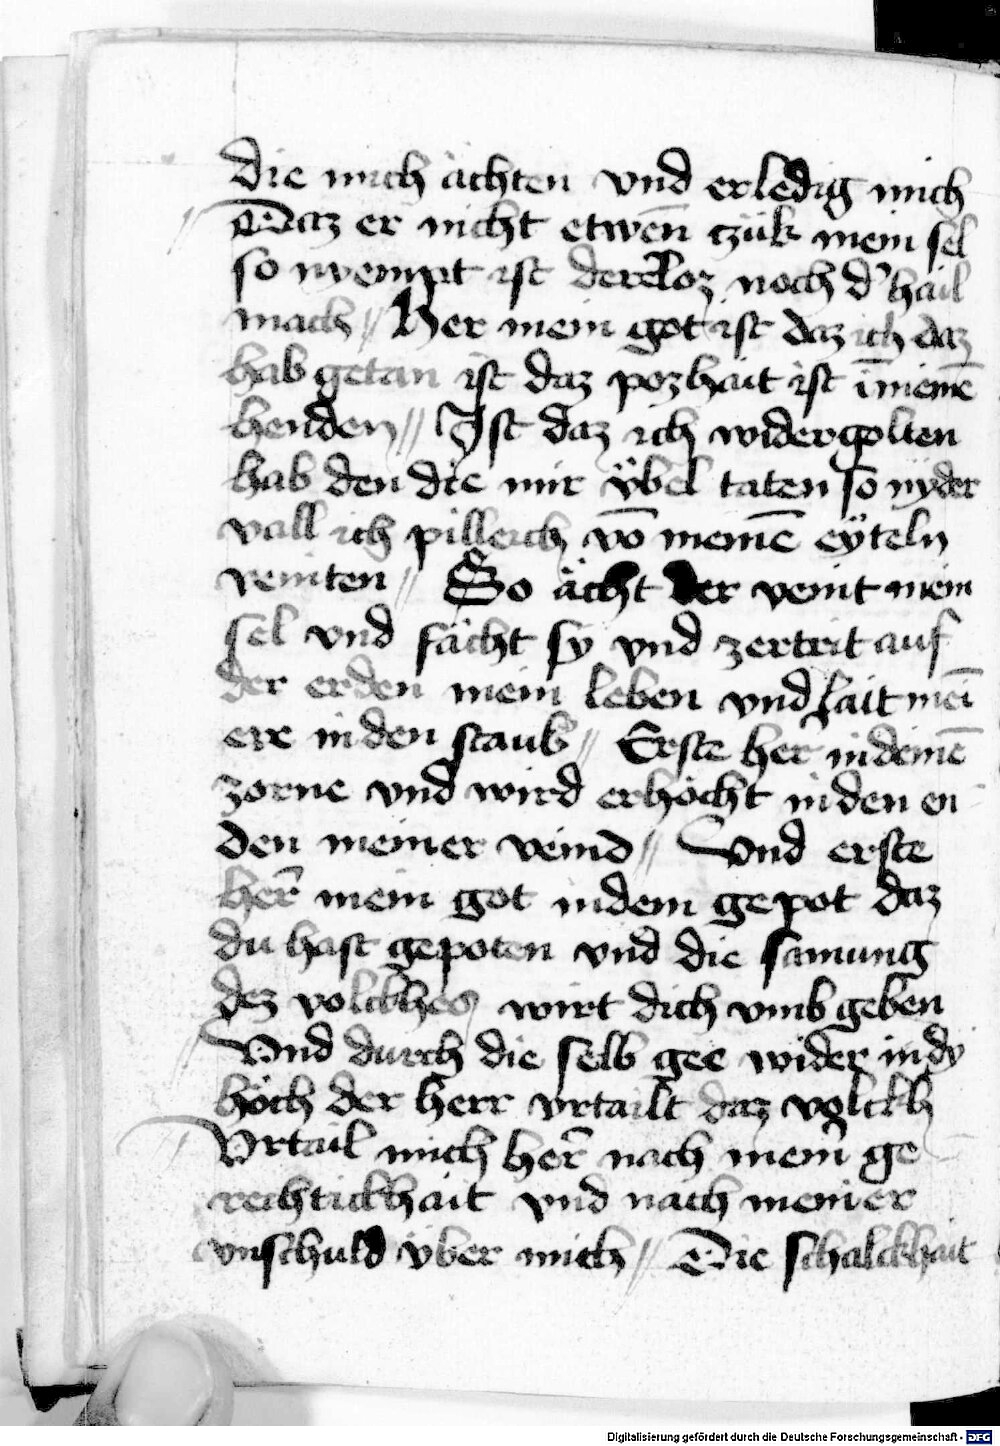 die mich ächten vnd erledig mich
Daz er nicht etwen̄ czük mein sel
so nyempt ist der erloz noch d' hail
mach // Her mein got ist daz ich daz
hab getan ist daz pozhait ist ī meinē
henden // Ist daz ich widergolten
hab den die mir ÿbel taten so nyder
vall ich pilleich vō meinē eÿteln
veinten // So ächt der veint mein
sel vnd fächt sy vnd zertrit auf
der erden mein leben vnd lait meī
ere in den staub // Erste her in deinē
zorne vnd wird erhöcht in den en
den meiner veind // Vnd erste
her̄ mein got in dem gepot daz
du hast gepoten vnd die samung
dez volckhes wirt dich vmb geben
Vnd durch die selb gee wider in dy
höch der herr vrtailt daz volckh
Vrtail mich her̄ nach mein̄ ge
rechtickhait vnd nach meiner
vnschuld vber mich // Die schalckhait
Digitalisierung gefördert durch die Deutsche Forschungsgemeinschaft - DFG